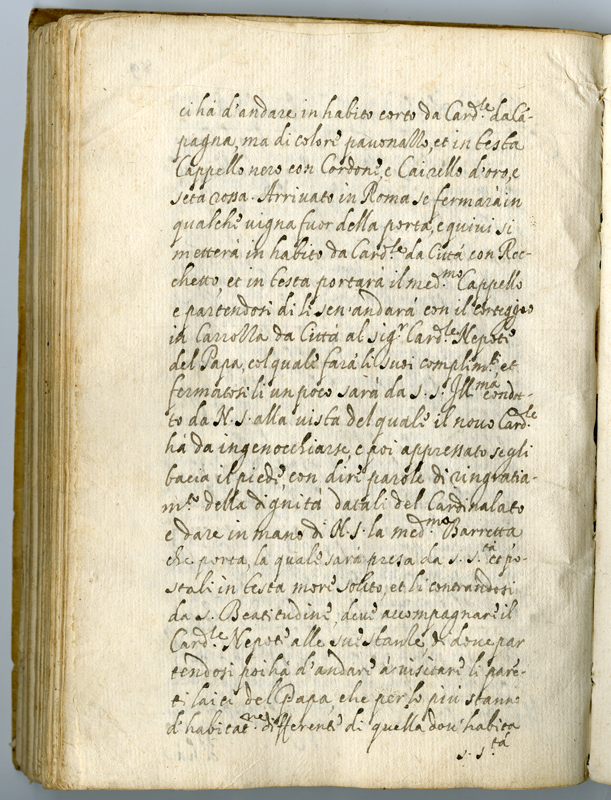 ci há d'andare in habito corto da Card.le da Cá-
pagna, ma di colore pauonazzo, et in testa
Cappello nero con Cordone, e Cairello d'oro, e
seta rossa. Arriuato in Roma se fermará in
qualche uigna fuor della porta, e quiui si
metterá in habito da Card.le da Cittá con Roc-
chetto, et in testa portará il med.mo Cappello
e partendosi di lí sen'andará con il corteggio
in Carrozza da Cittá al sig.r Card.le Nepote
del Papa, col quale fará li suoi complim.ti et
fermatosi lí un poco sará da S. S. Ill.ma condot-
to da N. S. alla uista del quale il nouo Card.le
há da ingenocchiarse, e poi appressato se gli
bacia il piede con dire parole di ringratia-
m.to della dignitá datali del Cardinalato
e dare in mano di N. S. la med.ma Barretta
che porta, la quale sará presa da S. S.tá et po-
stali in testa more solito, et licentiandosi
da S. Beatitudine, deue accompagnare il
Card.le Nepote alle sue stanze, di doue par
tendosi poi há d'andare á uisitare li paré-
ti laici del Papa, che per lo piú stanno
d'habitat.ne differente di quella dou'habita
S. S.tá